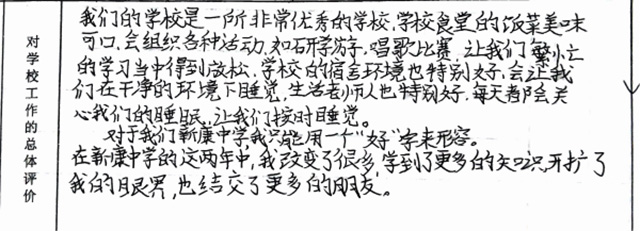 对学校工作的总体评价
我们的学校是一所非常优秀的学校,学校食堂的饭菜美味
可口,会组织各种活动,如研学游,唱歌比赛,让我们繁忙
的学习当中得到放松,学校的宿舍环境也特别好,会让我
们在干净的环境下睡觉,生活老师人也特别好,每天都会关
心我们的睡眠,让我们按时睡觉。
对于我们新康中学,我只能用一个“好”字来形容。
在新康中学的这两年中,我改变了很多,学到了更多的知识,开扩了
我的眼界,也结交了更多的朋友。